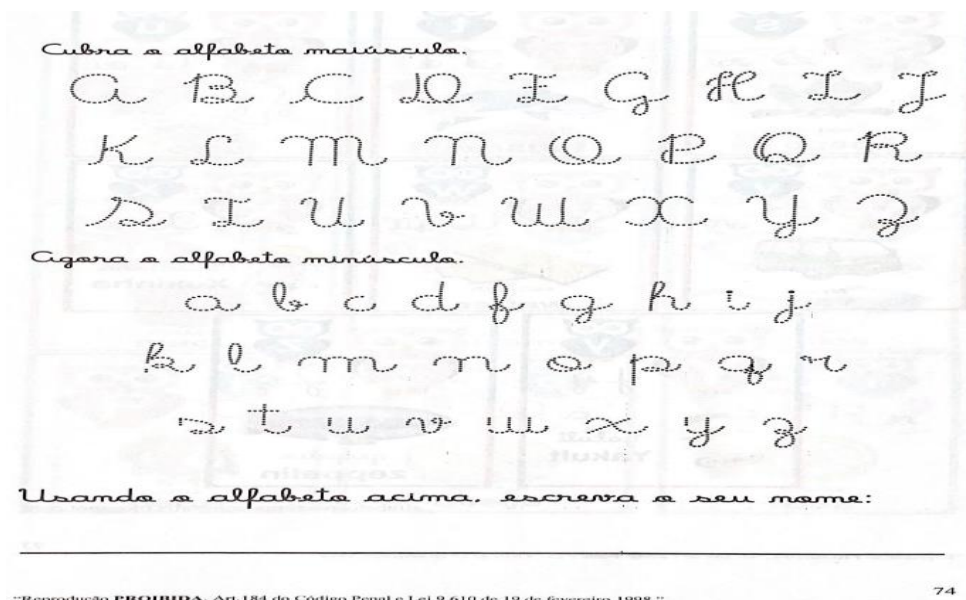 Cubra o alfabeto maiúsculo.
A B C D F G H I J
K L M N O P Q R
S T U V W X Y Z
Agora o alfabeto minúsculo.
a b c d f g h i j
k l m n o p q r
s t u v w x y z
Usando o alfabeto acima, escreva o seu nome:
74
"Reprodução PROIBIDA. Art.184 do Código Penal e Lei 9.610 de 19 de fevereiro 1998."